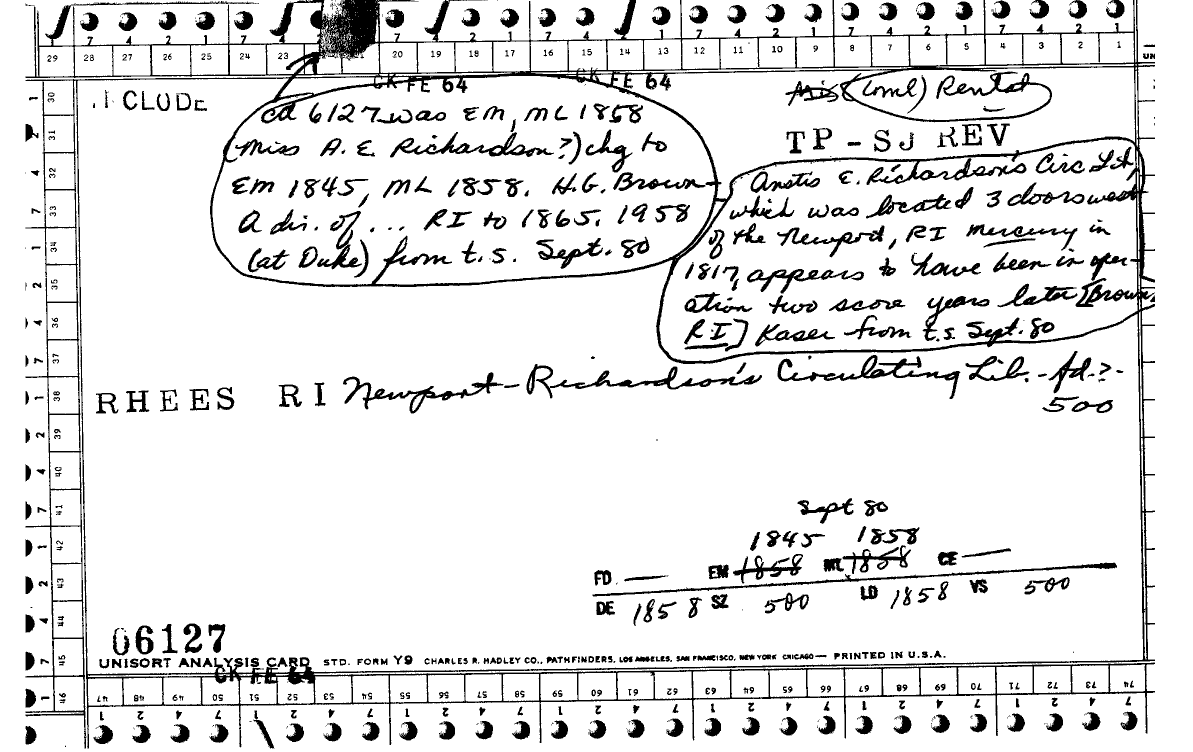 7 4 2 1 7 4 7 4 2 1 7 4 2 1 7 4 2 1 7 4 2 1
29 28 27 26 25 24 23 20 19 18 17 16 15 14 13 12 11 10 9 8 7 6 5 4 3 2 1
CK FE 64 CK FE 64
CLUDE
Mis (Coml) Rental
TP - SJ REV
cd 6127 was EM, ML 1858
(Miss A. E. Richardson?) chg to
EM 1845, ML 1858. H.G. Brown-
A dir. of ... RI to 1865. 1958
(at Duke) from t.s. Sept. 80
Anstis E. Richardson's Circ Lib,
which was located 3 doors west
of the Newport, RI Mercury in
1817, appears to have been in oper-
ation two score years later [Brown,
RI] Kaser from t.s. Sept. 80
RHEES RI Newport-Richardson's Circulating Lib. - Ad.?-
500
Sept 80
1845 1858
FD — EM 1858 ML 1858 CE —
DE 1858 SZ 500 LD 1858 VS 500
06127
UNISORT ANALYSIS CARD STD. FORM Y9 CHARLES R. HADLEY CO., PATHFINDERS, LOS ANGELES, SAN FRANCISCO, NEW YORK CHICAGO — PRINTED IN U.S.A.
CK FE 64
1 30
2 31
4 32
7 33
1 34
2 35
4 36
7 37
1 38
2 39
4 40
7 41
1 42
2 43
4 44
7 45
1 46
47 48 49 50 51 52 53 54 55 56 57 58 59 60 61 62 63 64 65 66 67 68 69 70 71 72 73 74
1 2 4 7 1 2 4 7 1 2 4 7 1 2 4 7 1 2 4 7 1 2 4 7 1 2 4 7